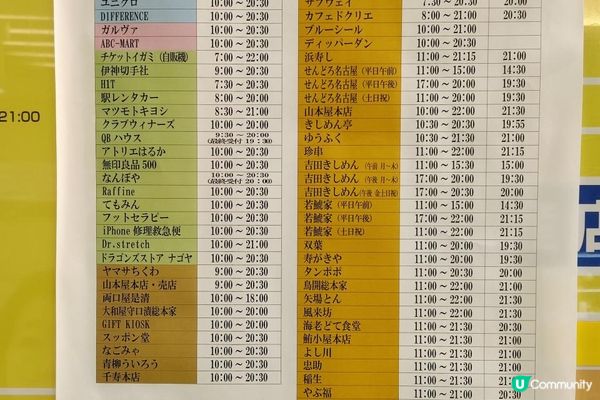 ユニクロ 10:00～20:30
DIFFERENCE 10:00～20:30
ガルヴァ 10:00～20:30
ABC-MART 10:00～20:30
チケットイガミ（自販機） 7:00～22:00
伊神切手社 9:00～20:30
HIT 7:30～20:30
駅レンタカー 8:00～20:00
マツモトキヨシ 8:30～21:00
クラブウィナーズ 10:00～20:00
QB ハウス 9:30～20:00
（最終受付 19:30）
アトリエはるか 10:00～20:30
無印良品 500 10:00～20:30
なんぼや 10:00～20:30
（最終受付 20:00）
Raffine 10:00～20:30
てもみん 10:00～20:30
フットセラピー 10:00～20:30
iPhone 修理救急便 10:00～20:30
Dr.stretch 10:00～21:00
ドラゴンズストア ナゴヤ 10:00～20:30
ヤマサちくわ 9:00～20:30
山本屋本店・売店 9:00～20:30
両口屋是清 10:00～18:00
大和屋守口漬総本家 10:00～20:30
GIFT KIOSK 10:00～20:30
スッポン堂 10:00～20:30
なごみゃ 10:00～20:30
青柳ういろう 10:00～20:30
千寿本店 10:00～20:30
サブウェイ 7:30～20:30 20:00
カフェドクリエ 8:00～21:00 20:30
ブルーシール 10:00～21:00
ディッパーダン 10:00～20:30
浜寿し 11:00～21:15 21:00
せんどろ名古屋（平日午前） 11:00～15:00 14:30
せんどろ名古屋（平日午後） 17:00～20:00 19:30
せんどろ名古屋（土日祝） 11:00～20:00 19:30
山本屋本店 10:00～22:00 21:30
きしめん亭 10:30～20:30 19:55
ゆうふく 10:30～21:30 21:00
珍串 11:00～22:00 21:15
吉田きしめん（午前 月～木） 11:00～15:30 15:00
吉田きしめん（午後 月～木） 17:00～20:00 19:30
吉田きしめん（午後 金土日祝） 17:00～20:30 20:00
若鯱家（平日午前） 11:00～15:00 14:30
若鯱家（平日午後） 17:00～22:00 21:15
若鯱家（土日祝） 11:00～22:00 21:15
双葉 11:00～20:00 19:30
寿がきや 11:00～20:00 19:30
タンポポ 11:00～20:30 20:00
鳥開総本家 11:00～22:00 21:30
矢場とん 11:00～22:00 21:30
風来坊 11:00～22:00 21:30
海老どて食堂 11:00～21:30 20:30
鮪小屋本店 11:00～21:30 21:00
よし川 11:00～21:30 21:00
忠助 11:00～21:30 21:00
稲生 11:00～21:30 21:00
やぶ福 11:00～21:30
21:00
店
U Community